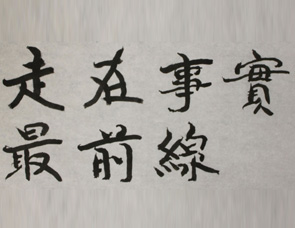 走在事實
最前線